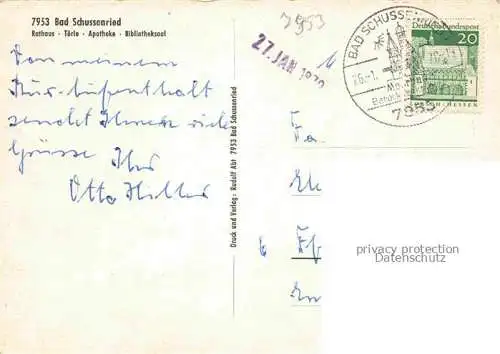 7953 Bad Schussenried
Rathaus · Törle · Apotheke · Bibliotheksaal
Von meinem
Kur-Aufenthalt
sendet Ihnen viele
Grüsse Ihr
Otto Hiller
Druck und Verlag: Rudolf Abt 7953 Bad Schussenried
7953
27. JAN 1970
BAD SCHUSSENRIED
26.-1.
7953
Deutsche Bundespost
20
LORSCH·HESSEN
Fa
privacy protection
Datenschutz